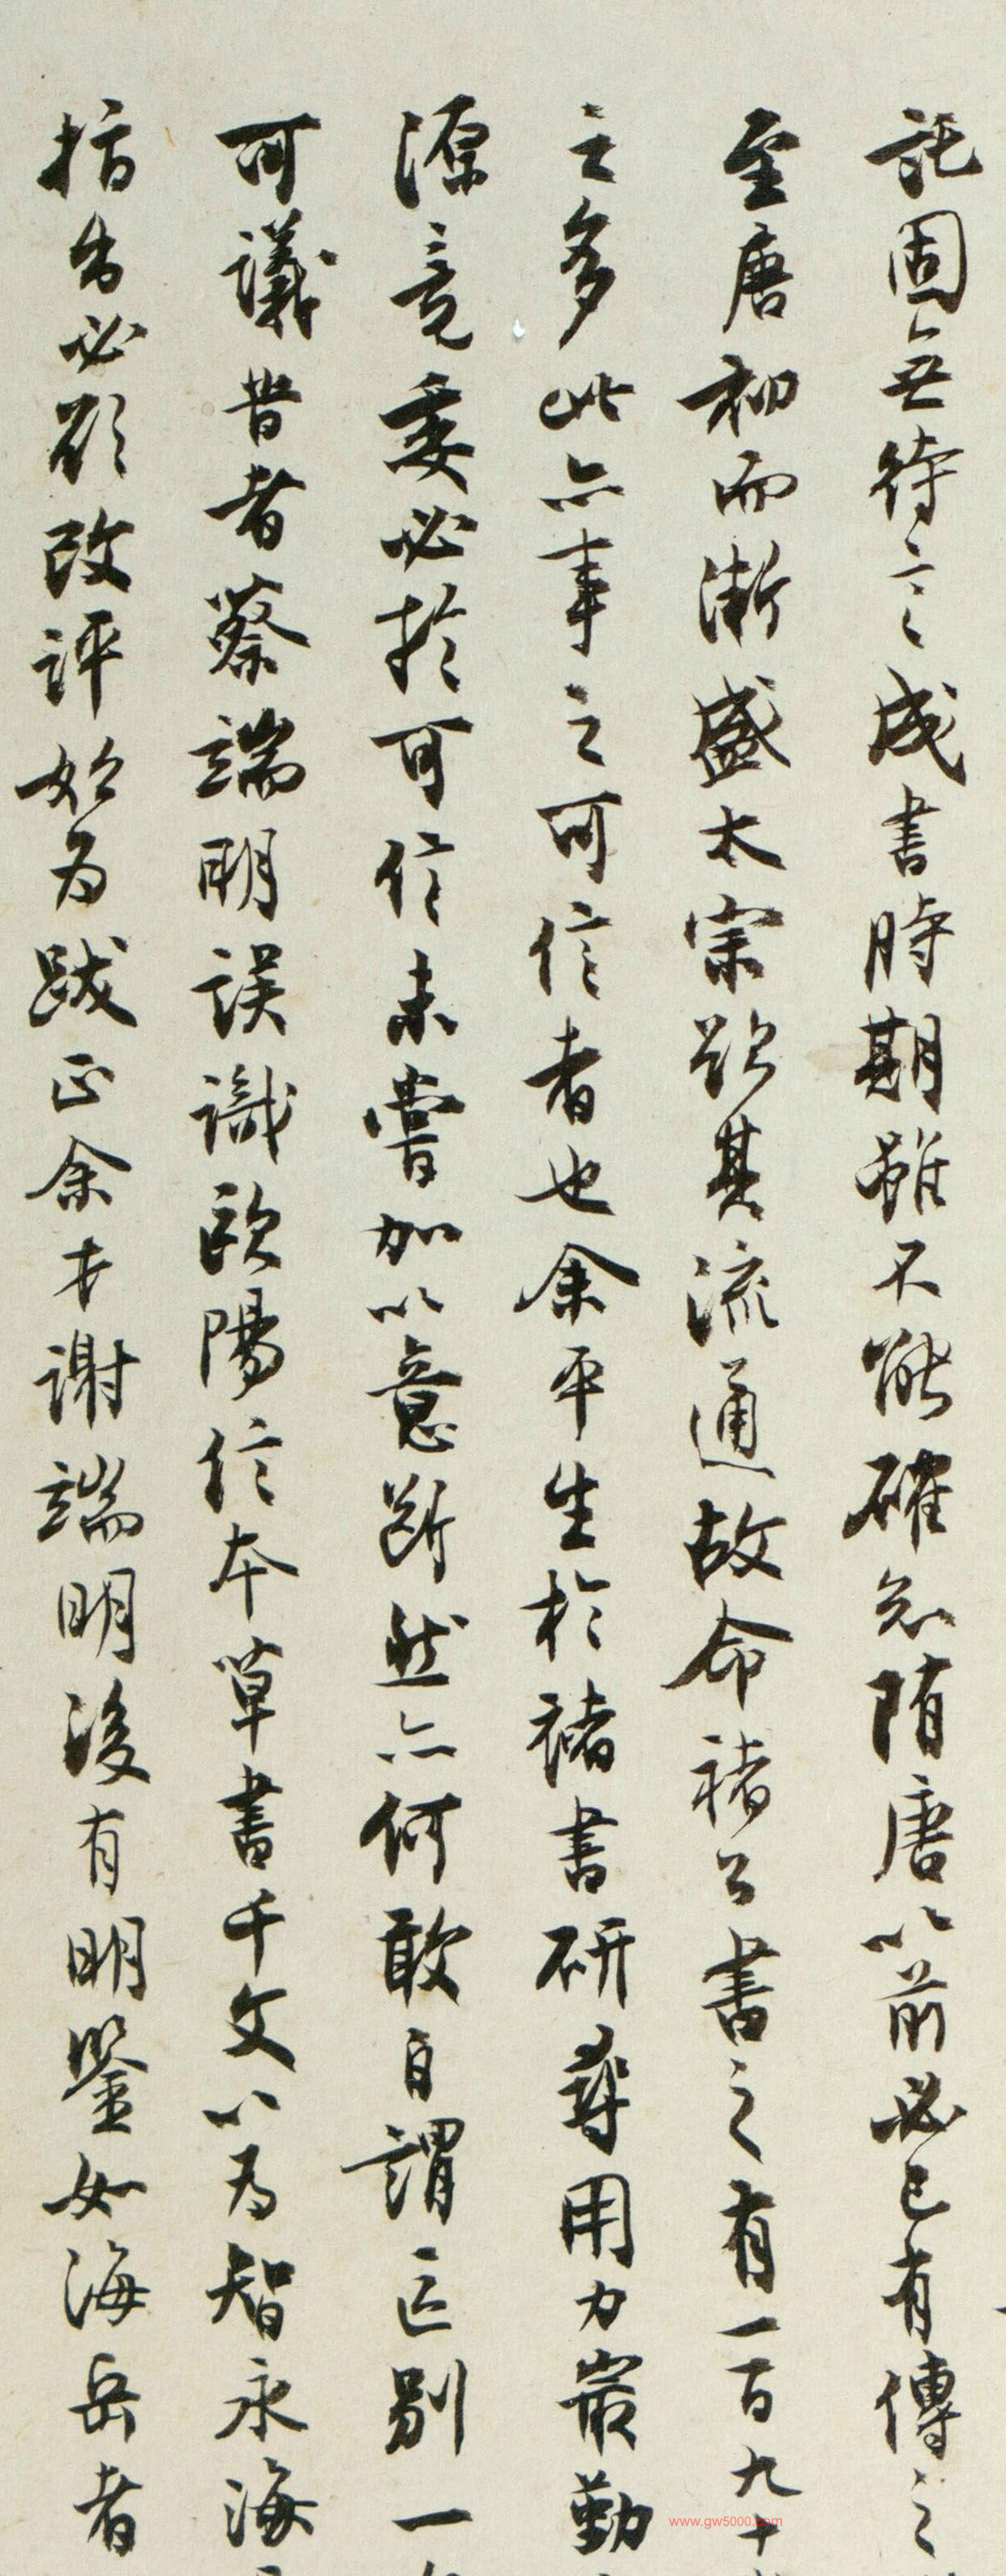 託固無待言之成書時期雖不能確知隋唐以前必已有傳之
至唐初而漸盛太宗欲其流通故命褚公書之有一百九十
之多此亦事之可信者也余平生於褚書研尋用力最勤
源竟委必於可信未嘗加以意斷然亦何敢自謂區別一
可議昔者蔡端明誤識歐陽信本草書千文以為智永海
指出必欲改評始為跋正余才謝端明後有明鑒如海岳者
www.gw5000.com